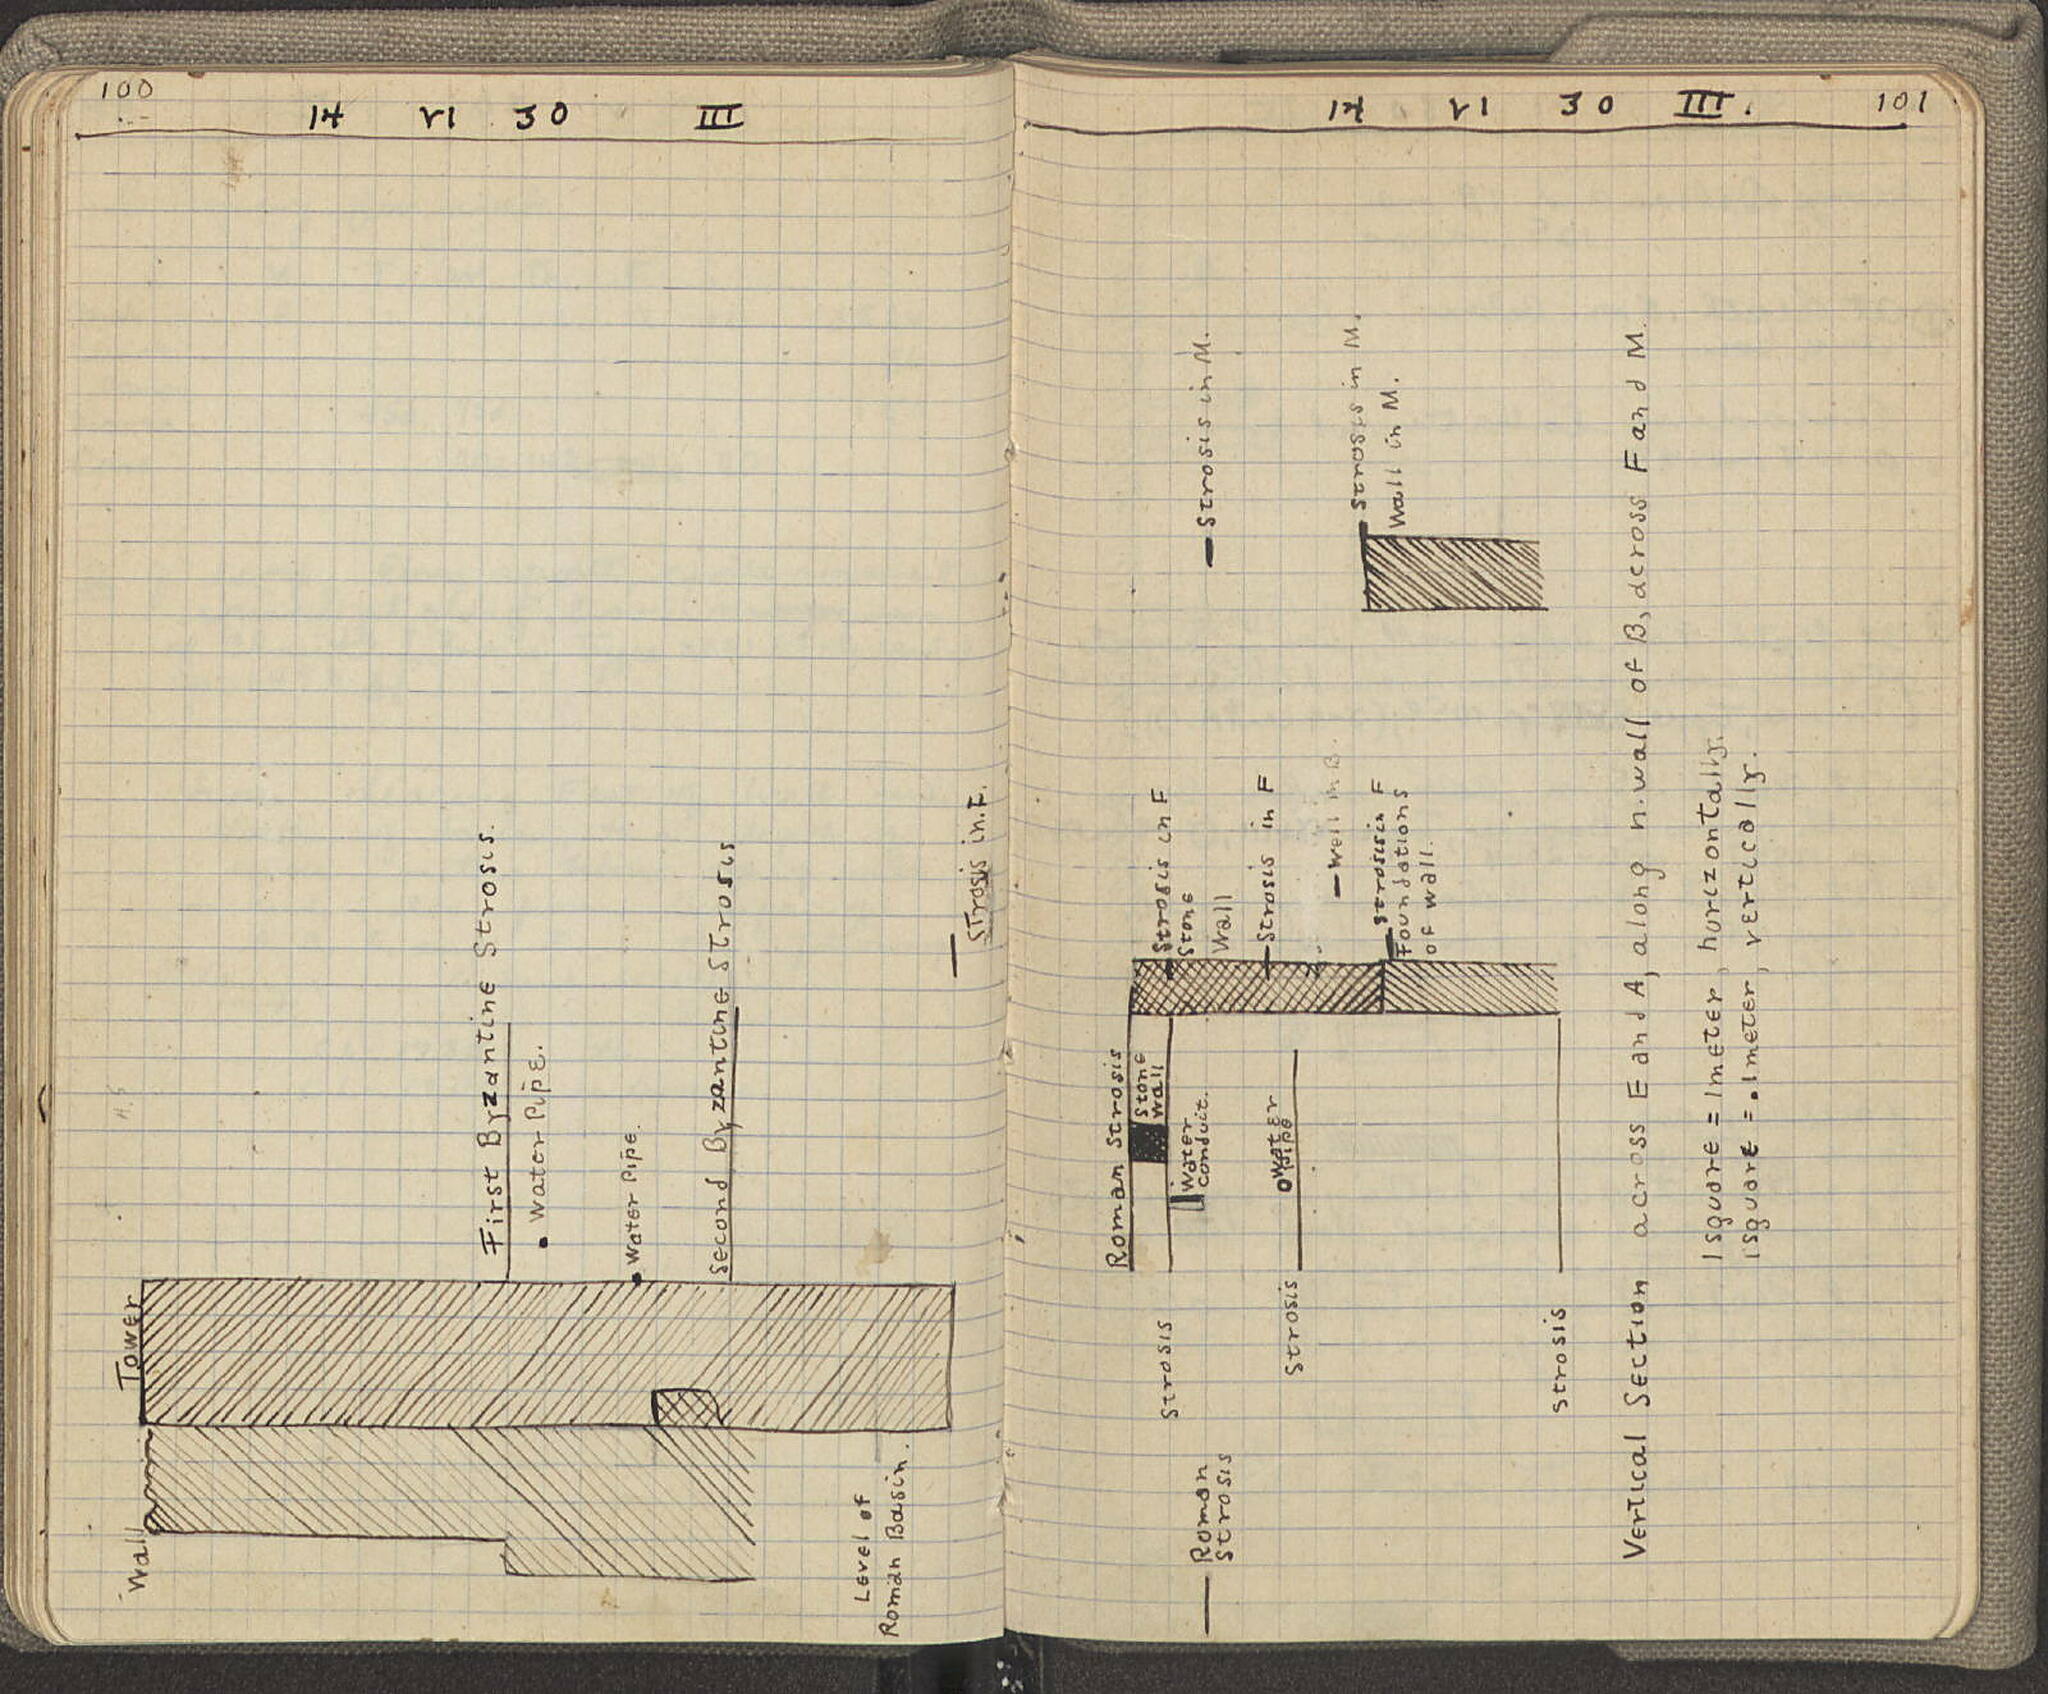 100
14 VI 30 III
Tower
Wall
First Byzantine Strosis.
Water Pipe.
Water Pipe.
Second Byzantine Strosis
Level of
Roman Basin.
Strosis in F.
14 VI 30 III. 101
Roman Strosis
Stone
Wall
Water
Conduit.
Strosis
Roman
Strosis
Strosis in F
Stone
Wall
Strosis in M.
Strosis in F
Water
Pipe
Strosis
Well in B.
Strosis in M.
Wall in M.
Strosis in F
Foundations
of wall.
Strosis
Vertical Section across E and A, along n. wall of B, across F and M.
1 square = 1 meter, horizontally.
1 square = .1 meter, vertically.